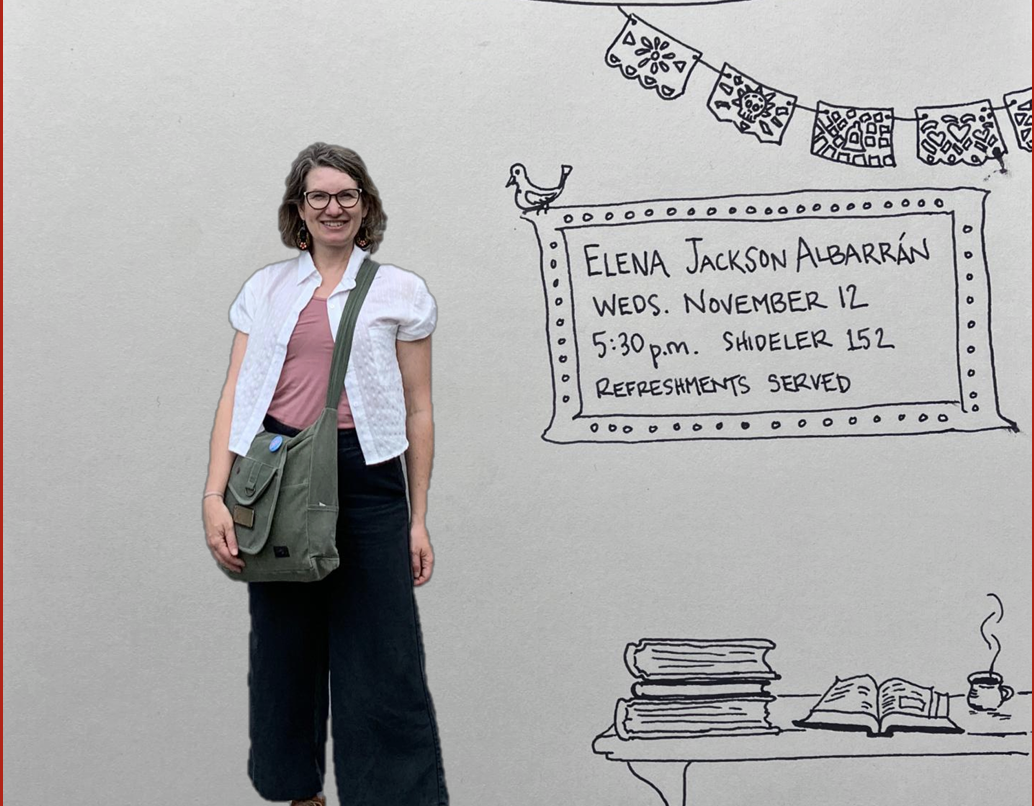 ELENA JACKSON ALBARRÁN
WEDS. NOVEMBER 12
5:30 p.m. SHIDELER 152
REFRESHMENTS SERVED